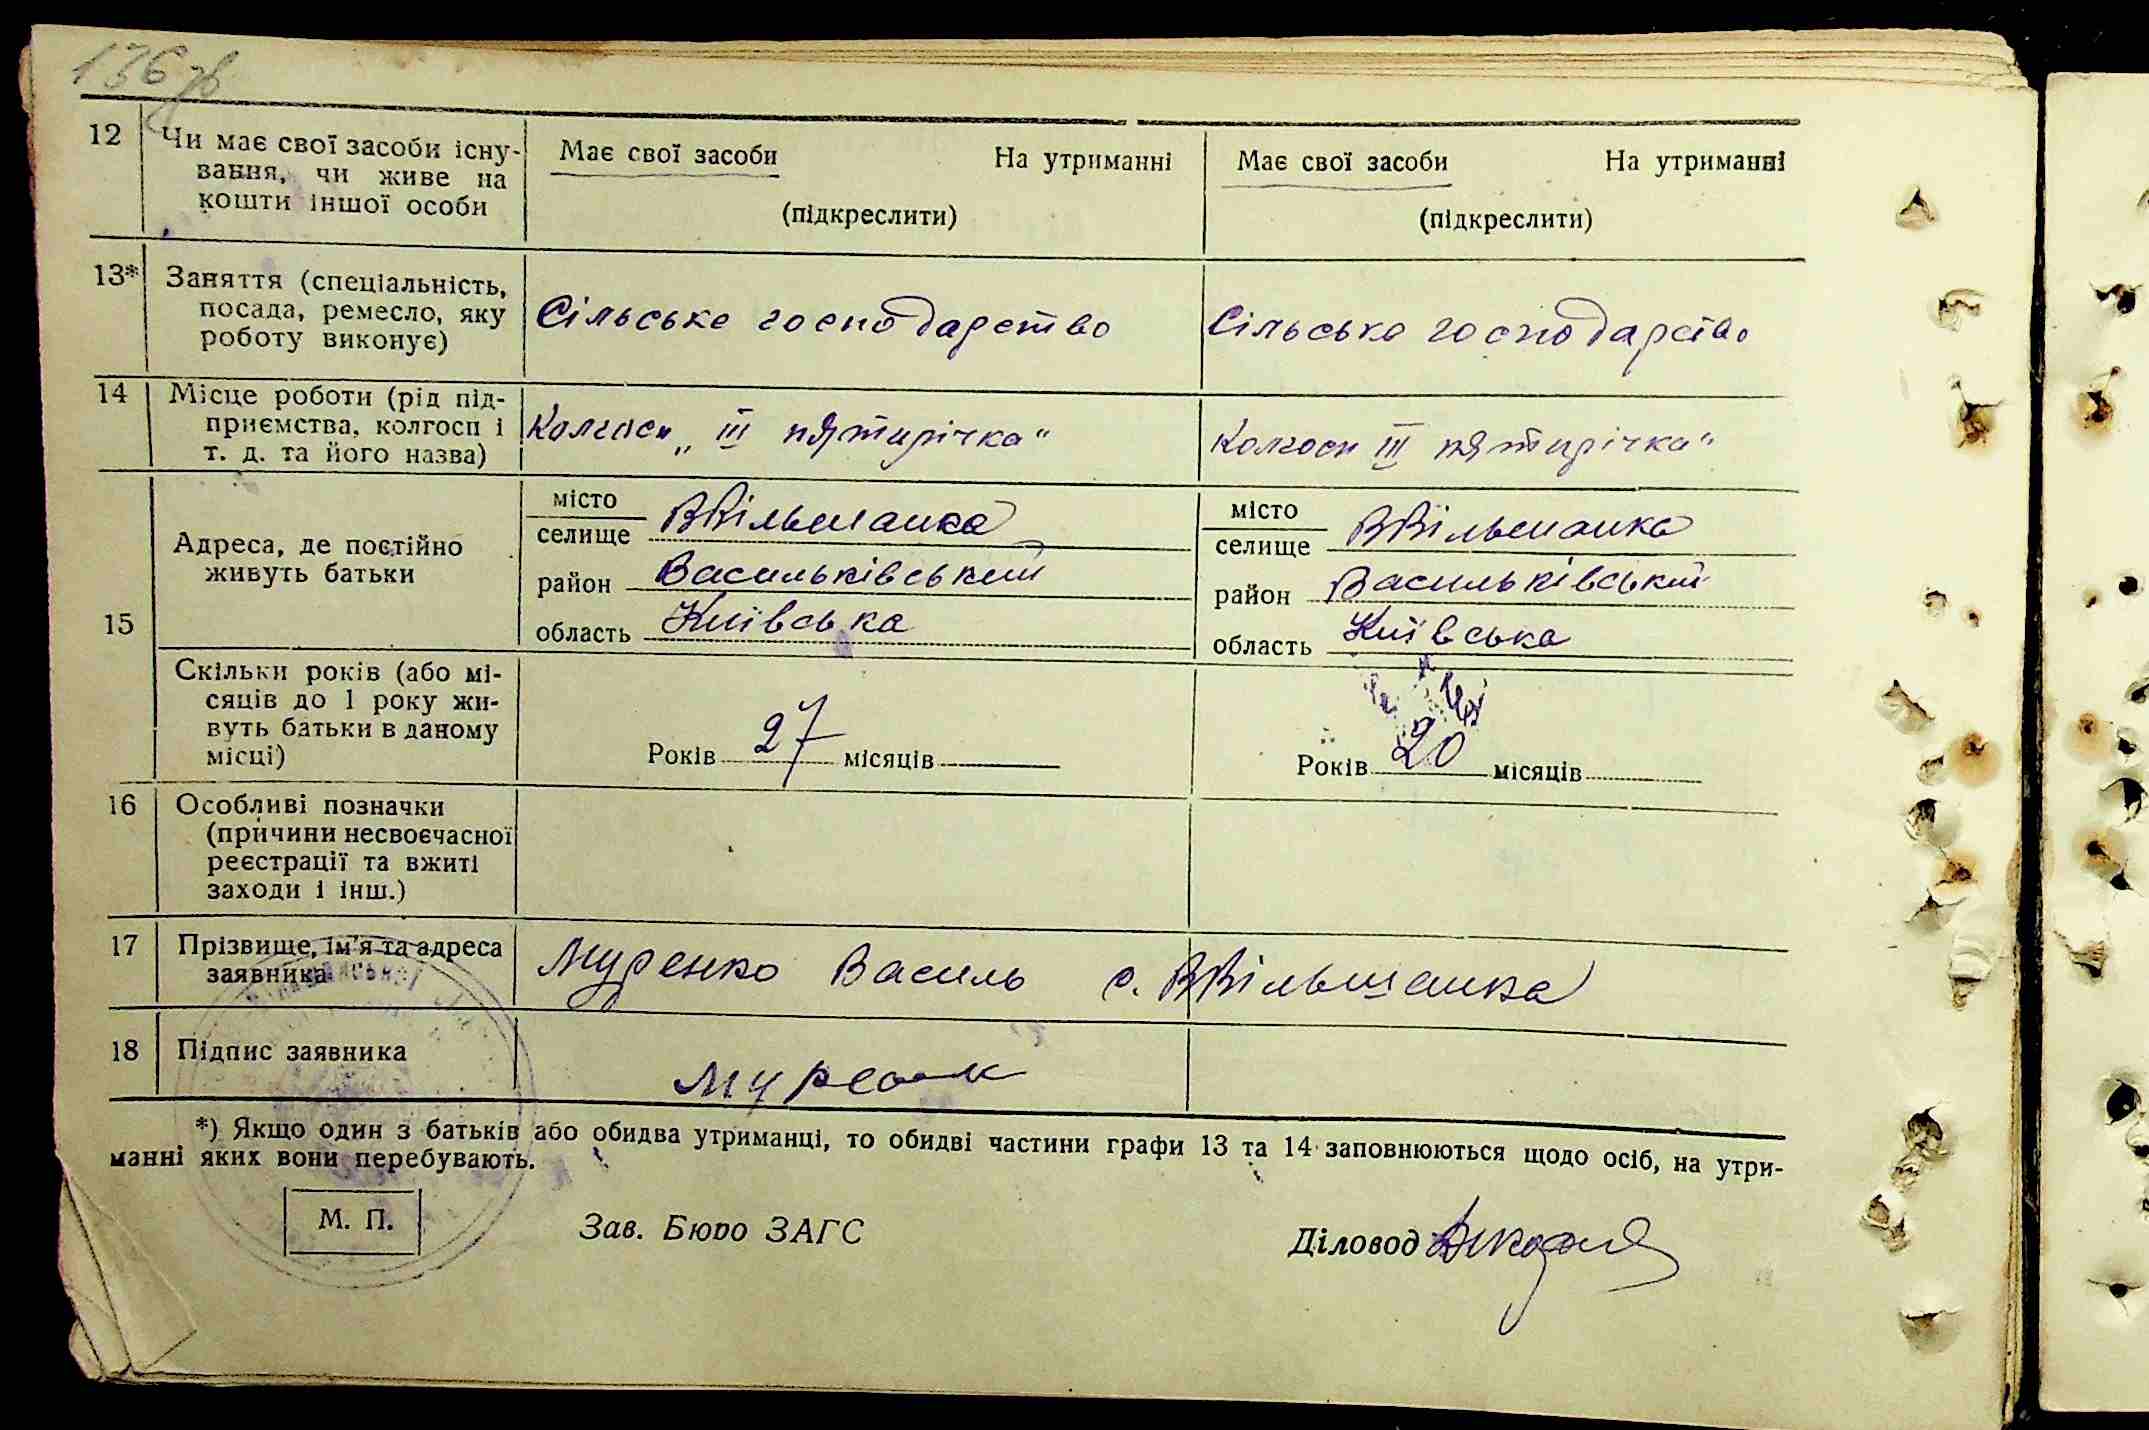 136 зв
12 Чи має свої засоби існу-
вання, чи живе на
кошти іншої особи
Має свої засоби На утриманні
(підкреслити)
Має свої засоби На утриманні
(підкреслити)
13* Заняття (спеціальність,
посада, ремесло, яку
роботу виконує)
Сільське господарство
Сільське господарство
14 Місце роботи (рід під-
приємства, колгосп і
т. д. та його назва)
Колгосп „III пятирічка"
Колгосп III пятирічка"
15
Адреса, де постійно
живуть батьки
місто
селище ВВільшанка
район Васильківський
область Київська
місто
селище ВВільшанка
район Васильківський
область Київська
Скільки років (або мі-
сяців до 1 року жи-
вуть батьки в даному
місці)
Років 27 місяців
Років 20 місяців
16 Особливі позначки
(причини несвоєчасної
реєстрації та вжиті
заходи і інш.)
17 Прізвище, ім'я та адреса
заявника
Муренко Василь с. ВВільшанка
18 Підпис заявника
*) Якщо один з батьків або обидва утриманці, то обидві частини графи 13 та 14 заповнюються щодо осіб, на утри-
манні яких вони перебувають.
М. П.
Зав. Бюро ЗАГС
Діловод